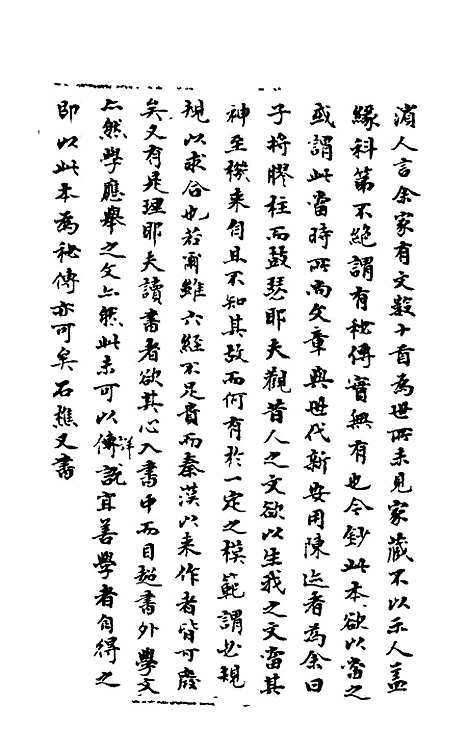 濵人言余家有文数十首為世所未見家藏不以示人盖
緣科第不絶謂有秘傳實無有也今鈔此本欲以當之
或謂此當時所尚文章與世代新安用陳迹者為余曰
子将膠柱而鼓瑟耶夫觀昔人之文欲以生我之文當其
神至襟来自且不知其故而何有於一定之模範謂必規
規以求合也若爾雖六經不足貴而秦漢以来作者皆可廢
矣又有是理耶夫讀書者欲其心入書中而目超書外學文
亦然學應舉之文亦然此未可以傳詳説宜善學者自得之
即以此本為秘傳亦可矣石樵又書